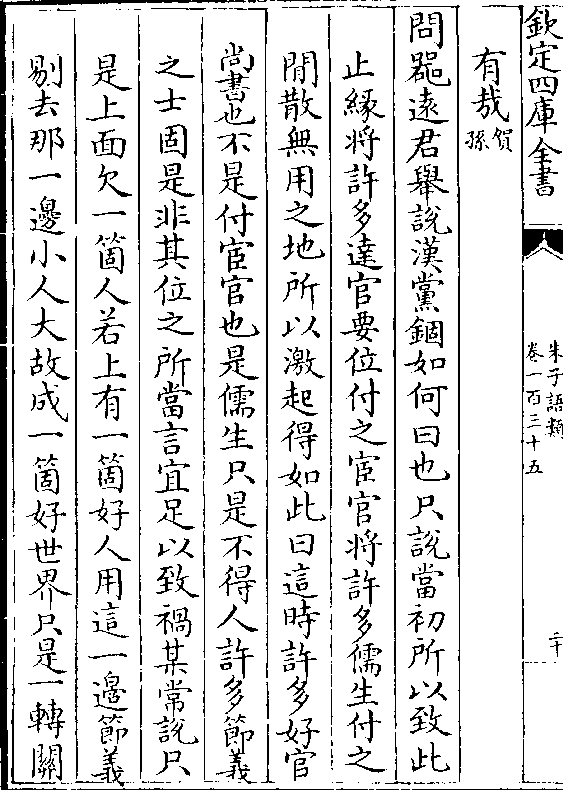 欽定四庫全書
朱子語類
卷一百三十五
二十
有哉賀孫
問器遠君舉說漢黨錮如何曰也只說當初所以致此
止緣將許多達官要位付之宦官將許多儒生付之
閒散無用之地所以激起得如此曰這時許多好官
尚書也不是付宦官也是儒生只是不得人許多節義
之士固是非其位之所當言宜足以致禍某常說只
是上面欠一箇人若上有一箇好人用這一邊節義
剔去那一邊小人大故成一箇好世界只是一轉關